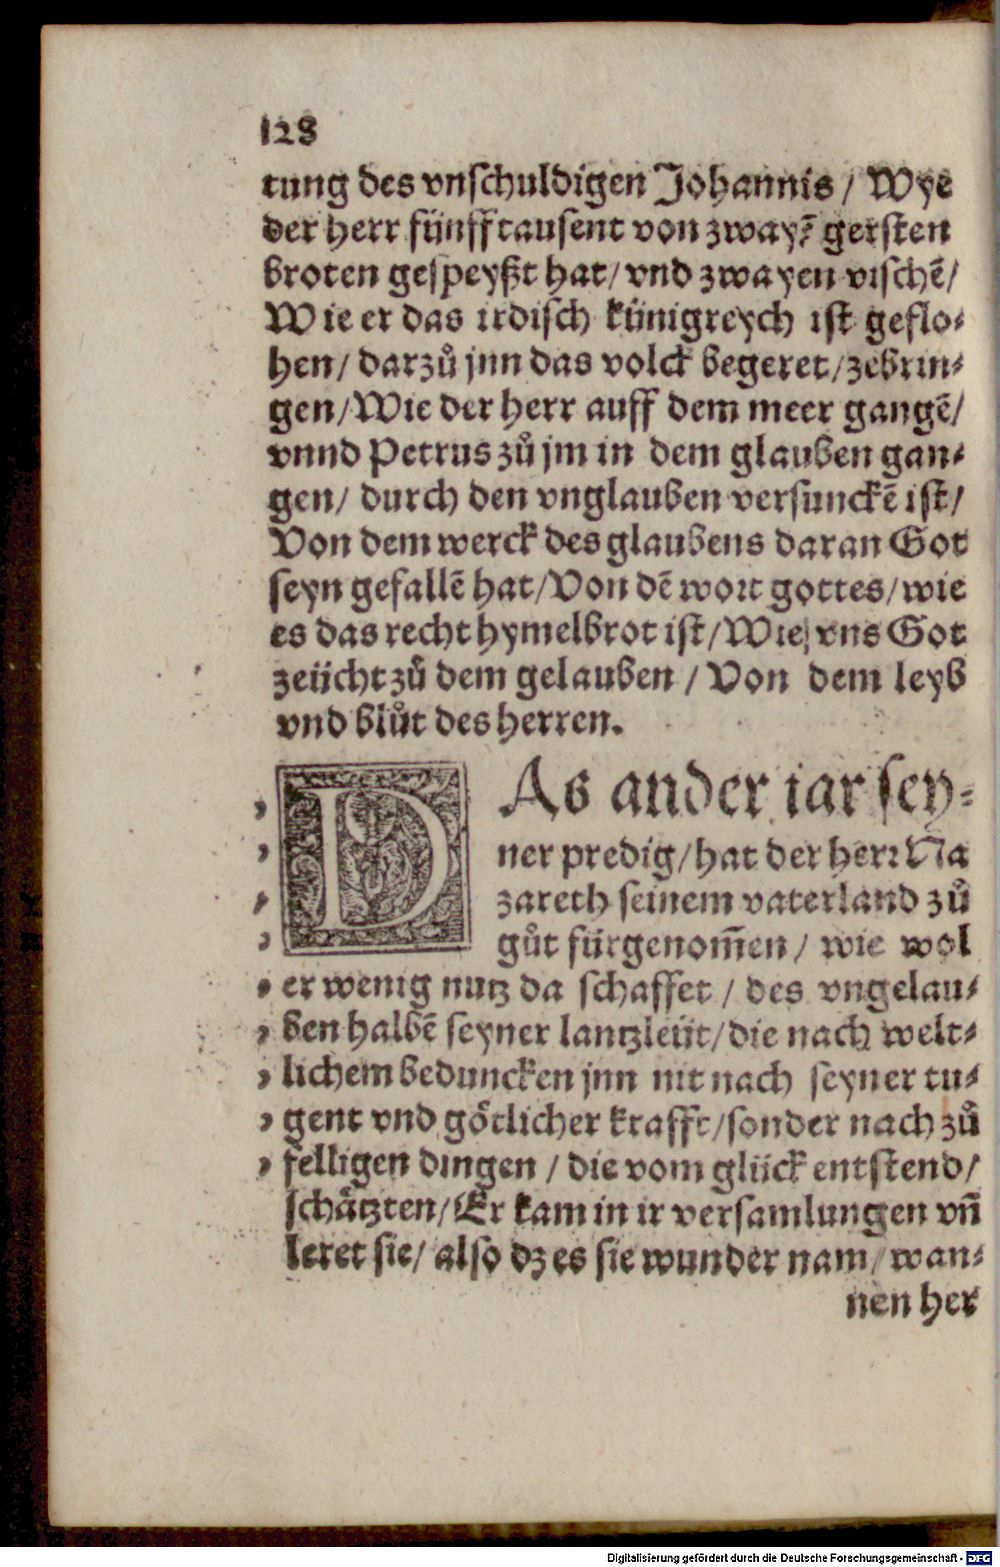 128
tung des vnschuldigen Johannis / Wye
der herr fünfftausent von zwayẽ gersten
broten gespeyßt hat / vnd zwayen vischẽ /
Wie er das irdisch künigreych ist geflo⸗
hen / darzů jnn das volck begeret / zebrin⸗
gen / Wie der herr auff dem meer gangẽ /
vnnd Petrus zů jm in dem glauben gan⸗
gen / durch den vnglauben versunckẽ ist /
Von dem werck des glaubens daran Got
seyn gefallẽ hat / Von dẽ wort gottes / wie
es das recht hymelbrot ist / Wie vns Got
zeücht zů dem gelauben / Von dem leyb
vnd blůt des herren.
DAs ander jar sey⸗
ner predig / hat der herr Na
zareth seinem vaterland zů
gůt fürgenom̃en / wie wol
er wenig nutz da schaffet / des vngelau⸗
ben halbẽ seyner lantzleüt / die nach welt⸗
lichem beduncken jnn nit nach seyner tu⸗
gent vnd gőtlicher krafft / sonder nach zů
felligen dingen / die vom glück entstend /
schåtzten / Er kam in ir versamlungen vñ
leret sie / also dz es sie wunder nam / wan⸗
nen her
Digitalisierung gefördert durch die Deutsche Forschungsgemeinschaft - DFG